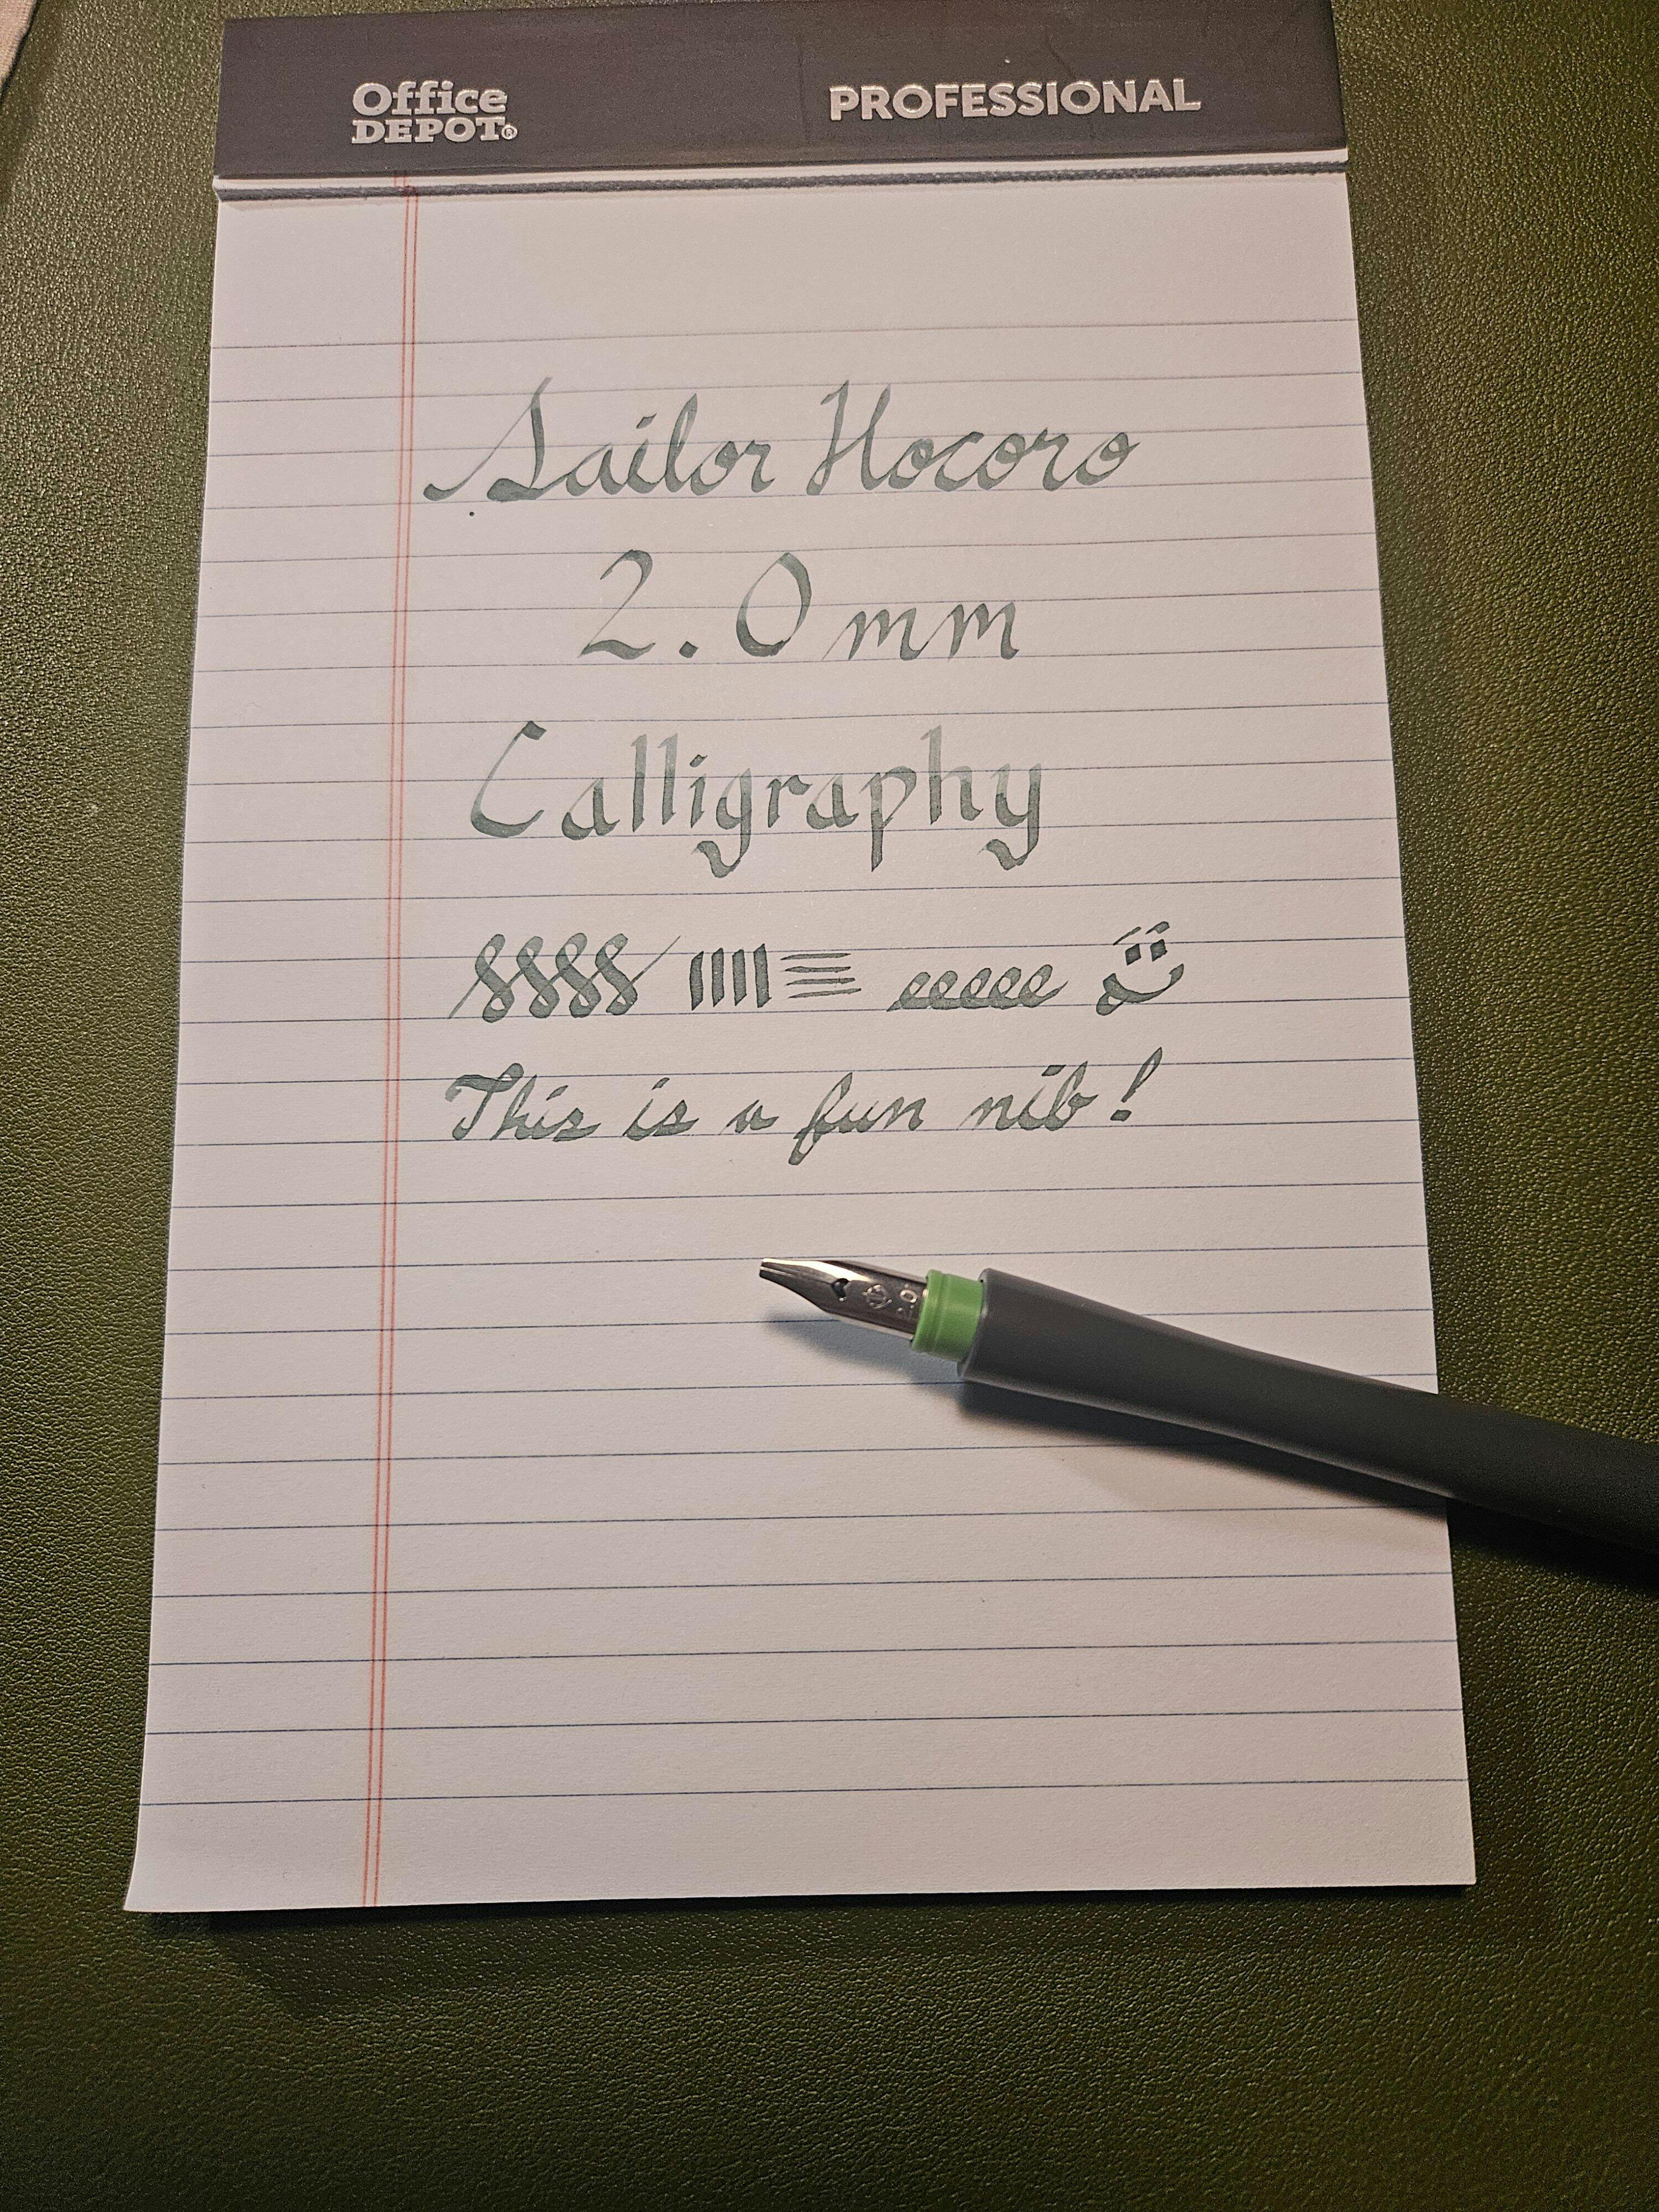 Office DEPOT® PROFESSIONAL
Sailor Hocoro
2.0 mm
Calligraphy
This is a fun nib!
2.0